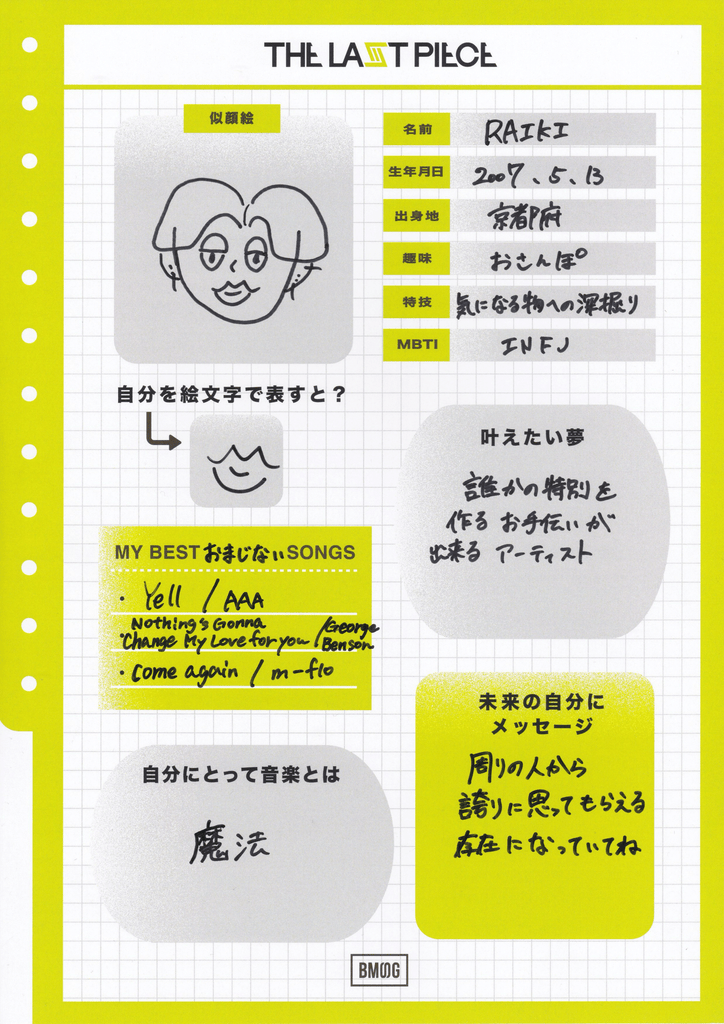 THE LAST PIECE
似顔絵
名前 RAIKI
生年月日 2007、5、13
出身地 京都府
趣味 おさんぽ
特技 気になる物への深掘り
MBTI INFJ
自分を絵文字で表すと？
叶えたい夢
誰かの特別を
作るお手伝いが
出来るアーティスト
MY BESTおまじないSONGS
・Yell / AAA
・Nothing's Gonna
Change My Love for you / George
Benson
・Come again / m-flo
未来の自分に
メッセージ
周りの人から
誇りに思ってもらえる
存在になっていてね
自分にとって音楽とは
魔法
BMSG